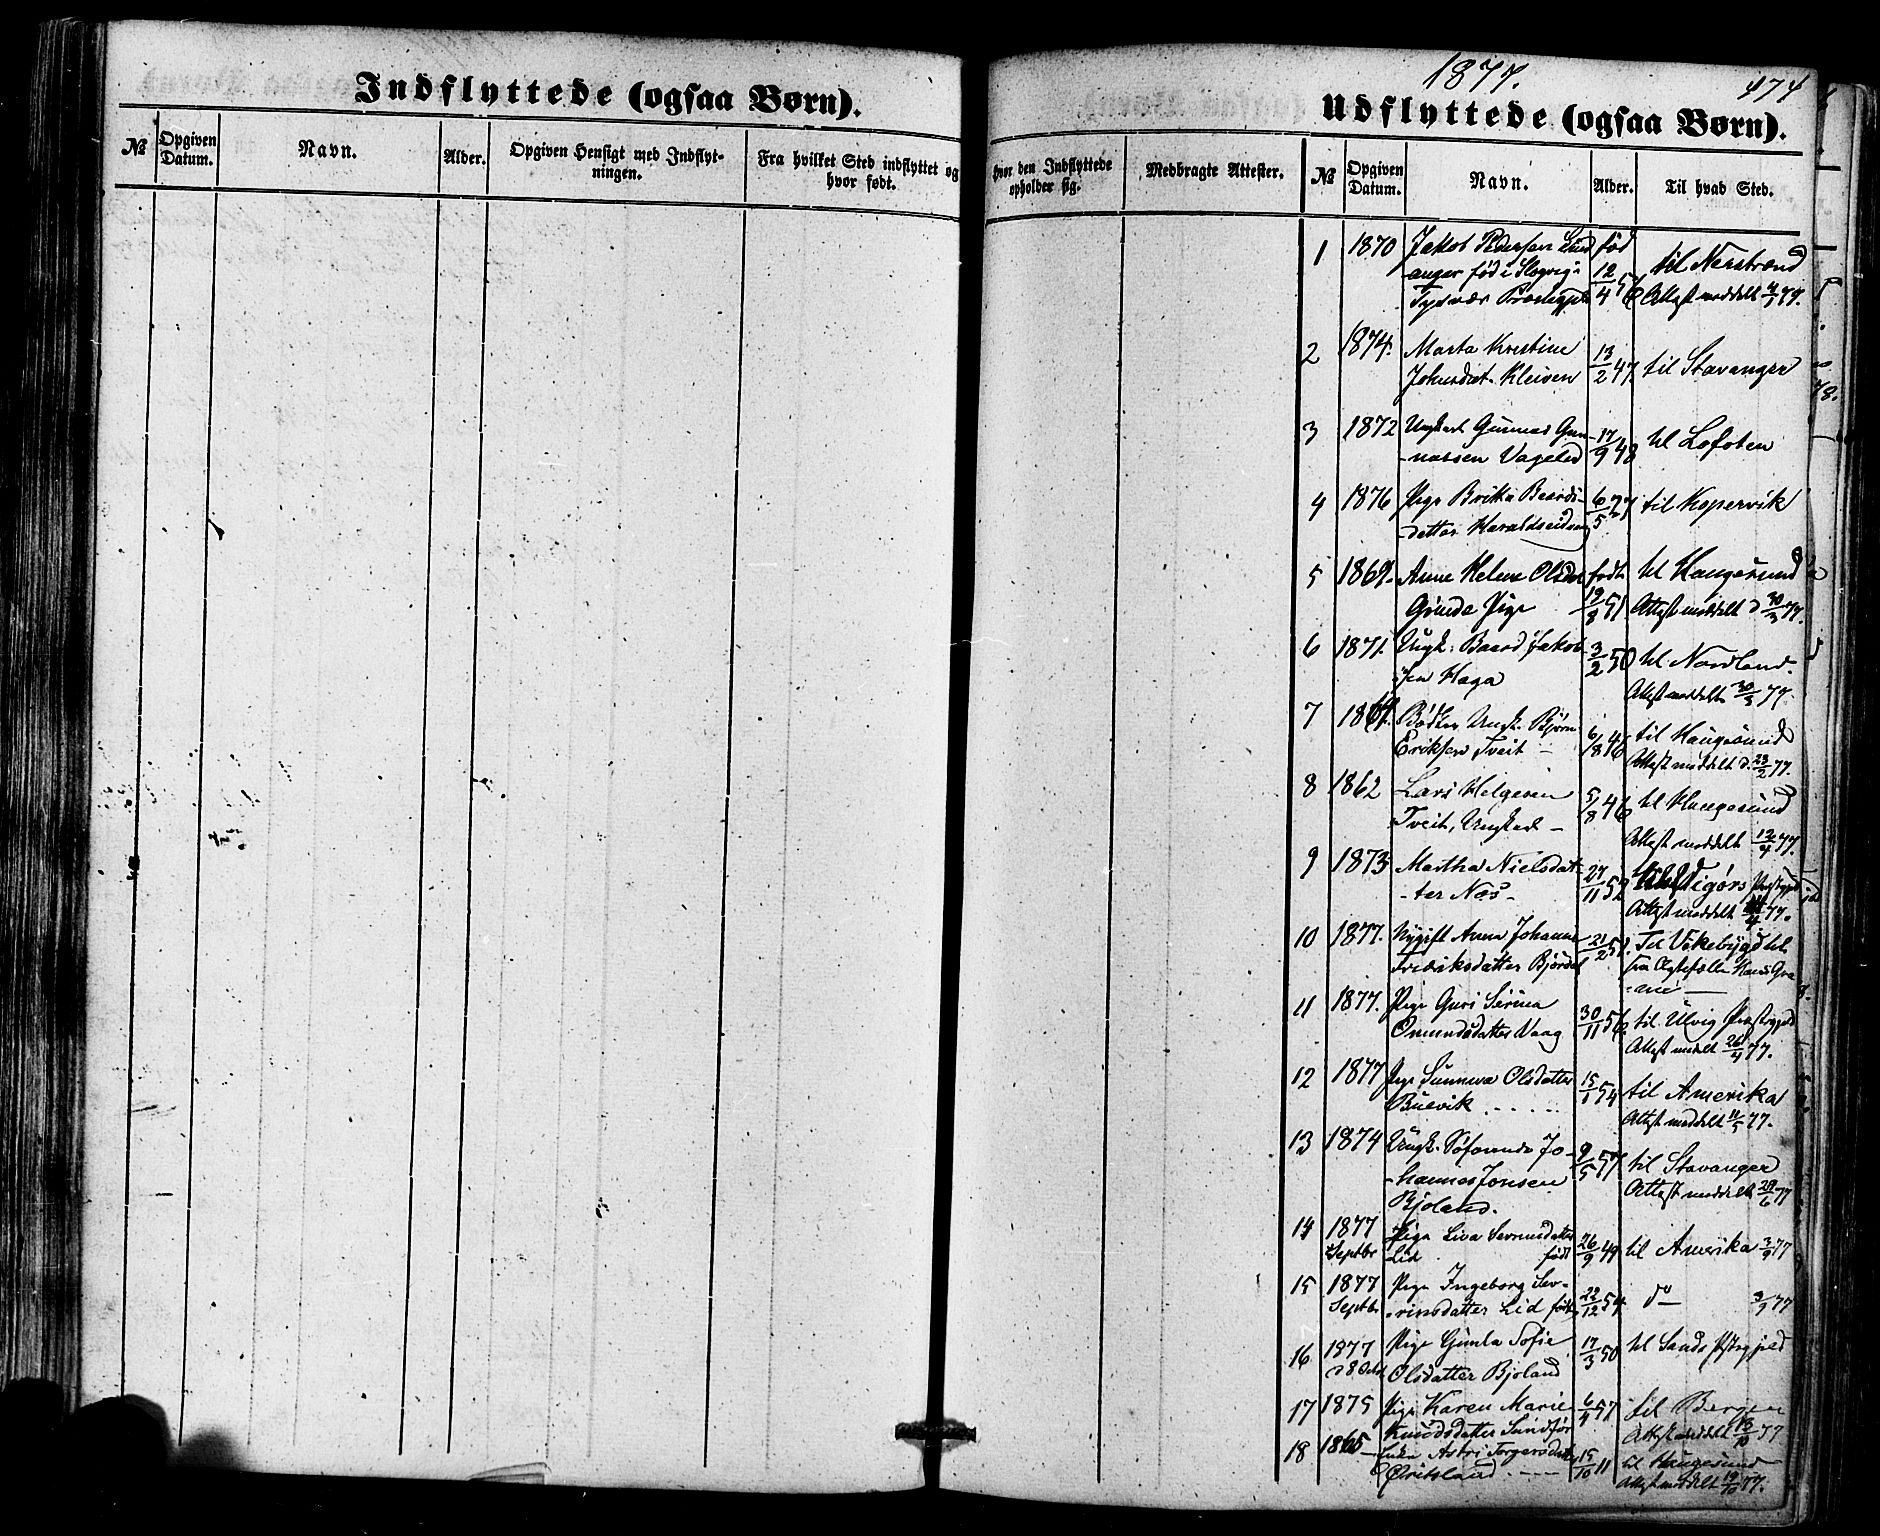 Indflyttede (ogsaa Børn).
№
Opgiven Datum.
Navn.
Alder.
Opgiven Hensigt med Indflyt-
ningen.
Fra hvilket Sted indflyttet og
hvor født.
1877.
474
Udflyttede (ogsaa Børn).
hvor den Indflyttede
opholder sig.
Medbragte Attester.
№
Opgiven Datum.
Navn.
Alder.
Til hvad Sted.
1 1870 Jakob Pedersen Lund fød til Nerstrand
anger fød i Slogvig i 12/4 56 Attest meddelt 77.
Tysvær
2 1874. Marta Kristine 13/2 47. til Stavanger
Johnsdat. Kleiven
3 1872 Ungkarl Gunnar Gun- 17/9 48 til Lofoten
-narsen Vageled
4 1876 Pige Britha Baards- 6/5 til Kopervik
-datter Haraldseid
5 1869. Anne Helene Olsdat født til Haugesund
Grinde Pige 19/8 51. Attest meddelt d 30/3 77.
6 1871. Ungk: Baard Jakob- 3/2 50 til Nordland.
sen Haga Attest meddelt 30/3 77.
7 Bødker Ungk. Bjørn 6/8 46 til Haugesund
Eriksen Tveit - Attest meddelt d. 23/2 77.
8 1862 Lars Helgesen 5/8 46 til Haugesund
Tveit, Ungkarl - Attest meddelt 12/4 77.
9 1873 Martha Nielsdat- 27/11 52 Præstgjeld
-ter Nos - Attest meddelt 77.
10 1877. Nygift Anna Johanne 21/2 Til Vikebygd til
Fredriksdatter Bjordal fra Ægtefælle Hans
11 1877. Pige Guri Serina 30/11 56 til Ulvig Præstegjeld
Omundsdatter Vaag Attest meddelt 26/4 77.
12 1877 Pige Sunneva Olsdatter 15/1 54 til Amerika
Buevik . . . . . Attest meddelt 11/5 77.
13 1874 Ungk. Jo- 9/5 57 til Stavanger
-hannes Jonsen Attest meddelt 77
Bjoland.
14 1877 Pige Liva Sevrinsdatter 26/9 49 til Amerika 3/9 77
Septbr Lid født
15 1877 Pige Ingeborg Sev- 22/12 54 do 3/9 77
Septbr -rinsdatter Lid født
16 1877 Pige Gunla Sofie 17/3 50 til Sands Præstgjeld
Olsdatter Bjoland
17 1875 Pige Karen Marie 6/4 57 til Bergen
Knudsdatter Sundfør Attest meddelt 13/10 77
18 1865 - Enke Astri Torgersdatter 15/10 11 til Haugesund
Attest meddelt 19/10 77.